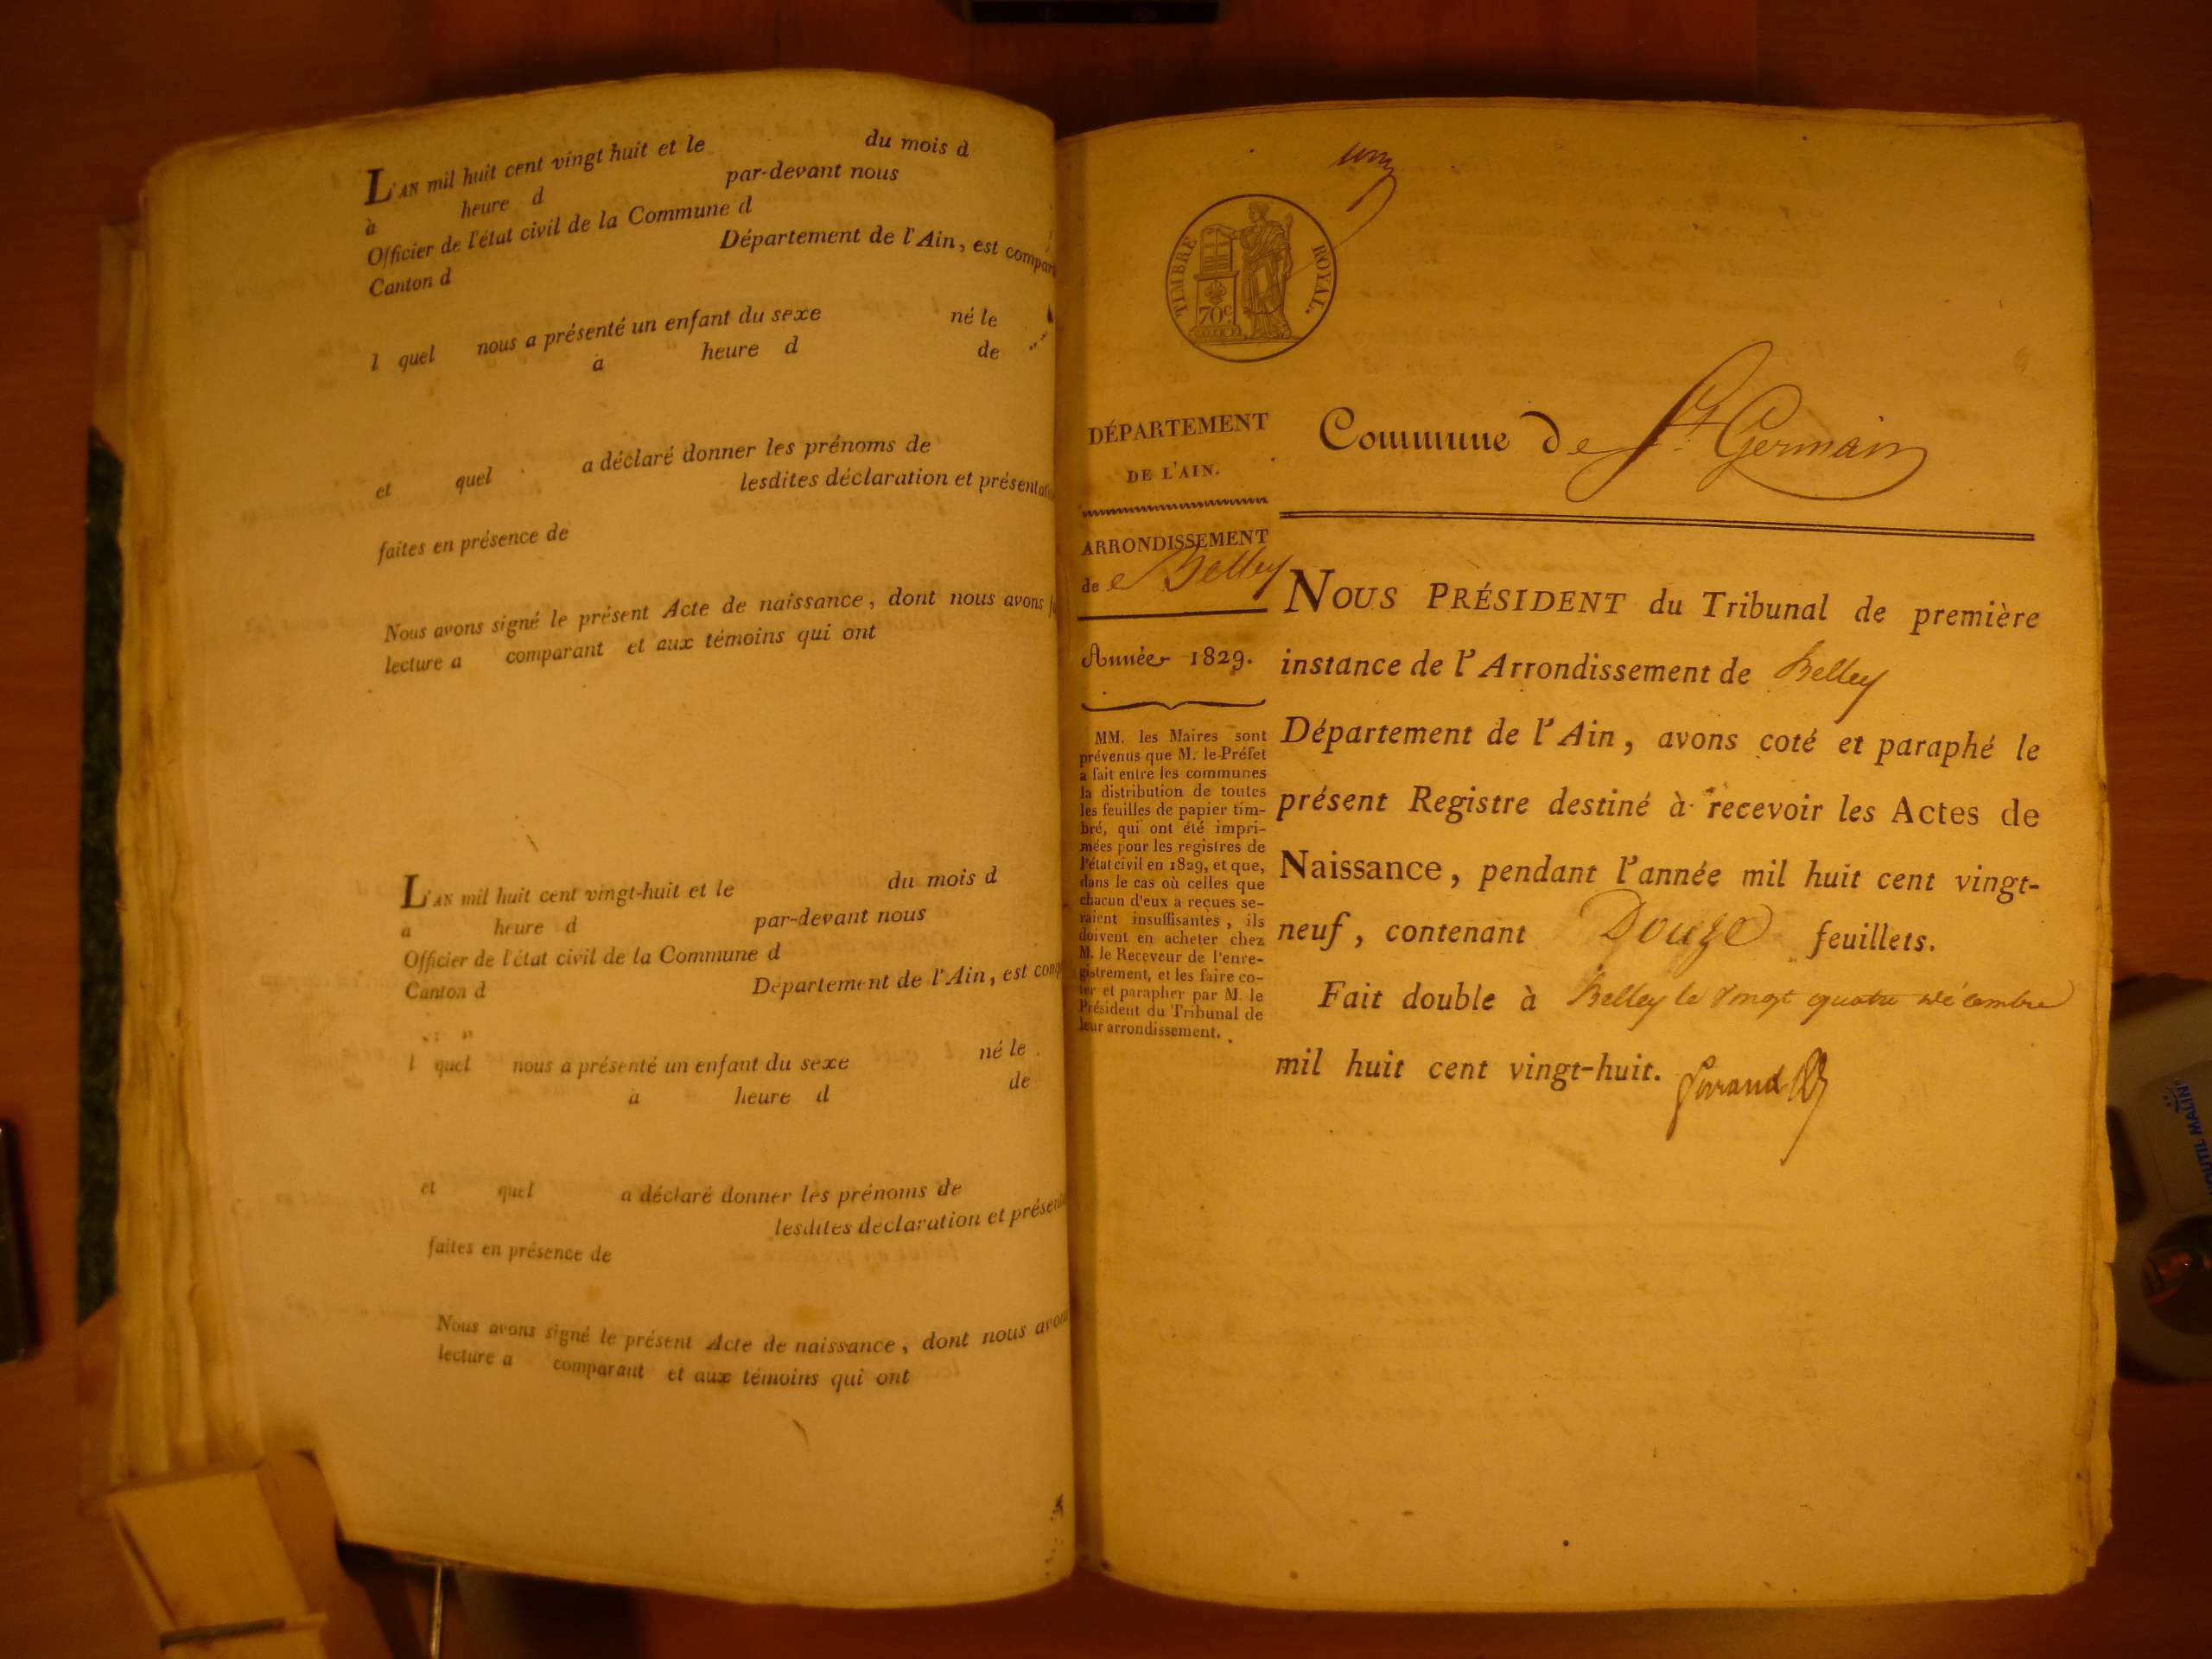 L'AN mil huit cent vingt huit et le du mois d
à heure d par-devant nous
Officier de l'état civil de la Commune d
Canton d Département de l'Ain, est compar
l quel nous a présenté un enfant du sexe né le
à heure d de
et quel a déclaré donner les prénoms de
lesdites déclaration et présentati
faites en présence de
Nous avons signé le présent Acte de naissance, dont nous avons f
lecture a comparant et aux témoins qui ont
L'AN mil huit cent vingt-huit et le du mois d
a heure d par-devant nous
Officier de l'état civil de la Commune d
Canton d Département de l'Ain, est comp
l quel nous a présenté un enfant du sexe né le
a heure d de
et quel a déclaré donner les prénoms de
lesdites declaration et présent
faites en présence de
Nous avons signé le présent Acte de naissance, dont nous avon
lecture a comparant et aux témoins qui ont
TIMBRE ROYAL.
70c
DÉPARTEMENT
DE L'AIN.
Commune de St. Germain
ARRONDISSEMENT
de Belley
Année 1829.
MM. les Maires sont
prévenus que M. le Préfet
a fait entre les communes
la distribution de toutes
les feuilles de papier tim-
bré, qui ont été impri-
mées pour les registres de
l'état civil en 1829, et que,
dans le cas où celles que
chacun d'eux a reçues se-
raient insuffisantes, ils
doivent en acheter chez
M. le Receveur de l'enre-
gistrement, et les faire co-
ter et parapher par M. le
Président du Tribunal de
leur arrondissement.
NOUS PRÉSIDENT du Tribunal de première
instance de l'Arrondissement de Belley
Département de l'Ain, avons coté et paraphé le
présent Registre destiné à recevoir les Actes de
Naissance, pendant l'année mil huit cent vingt-
neuf, contenant Douze feuillets.
Fait double à Belley le vingt quatre décembre
mil huit cent vingt-huit.
OUTIL MALIN